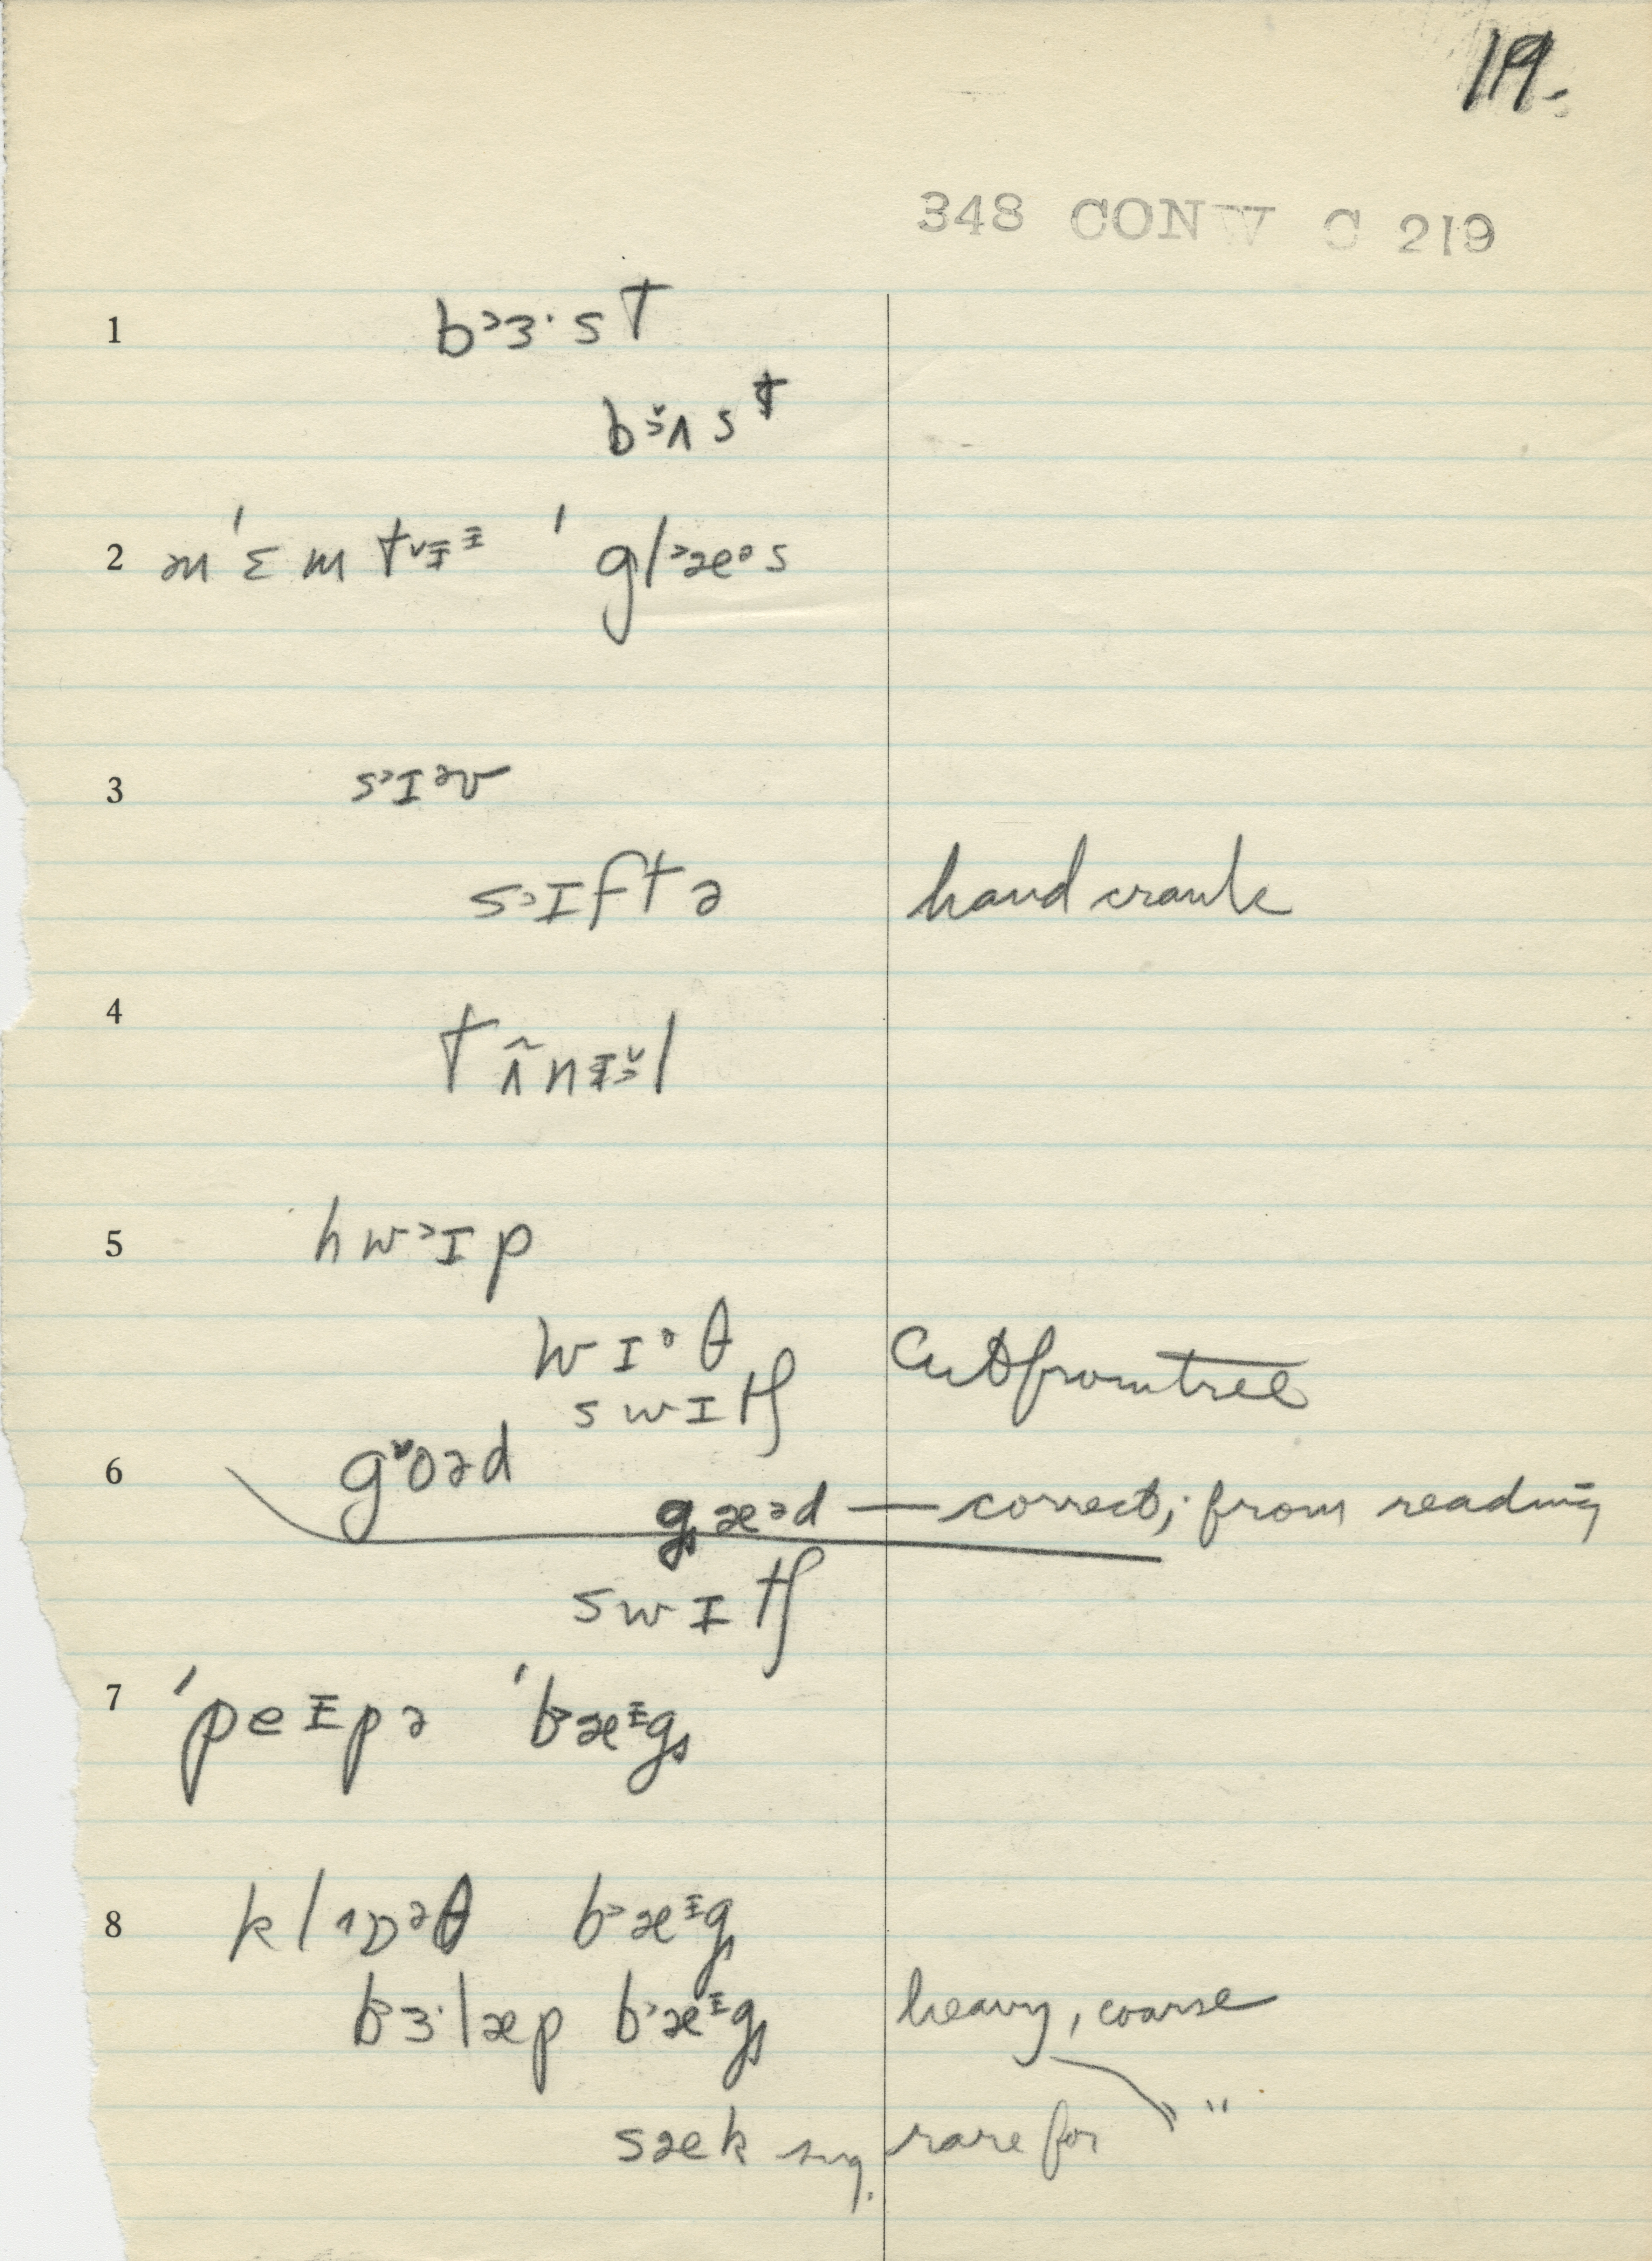 19.
348 CONW C 219
1 b˃ɜ·st
bɜ̌ʌst
2 m'ɛmtᵛɨᶤ 'gl˃æᵊs
3 s˃ɪᵊv
s˃ɪftə hand crank
4 tʌ̃nɨɜ̌l
5 hw˃ɪp
wɪᵊθ Cut from tree
swɪtʃ
6 gᵛoəd
gæəd — correct; from reading
swɪtʃ
7 'peɨpə 'b˃æᶤg
8 kl˄ɒᵊθ b˃æᶤg
b˃ɜ·læp b˃æᶤg heavy, coarse
sæk sug. rare for " "